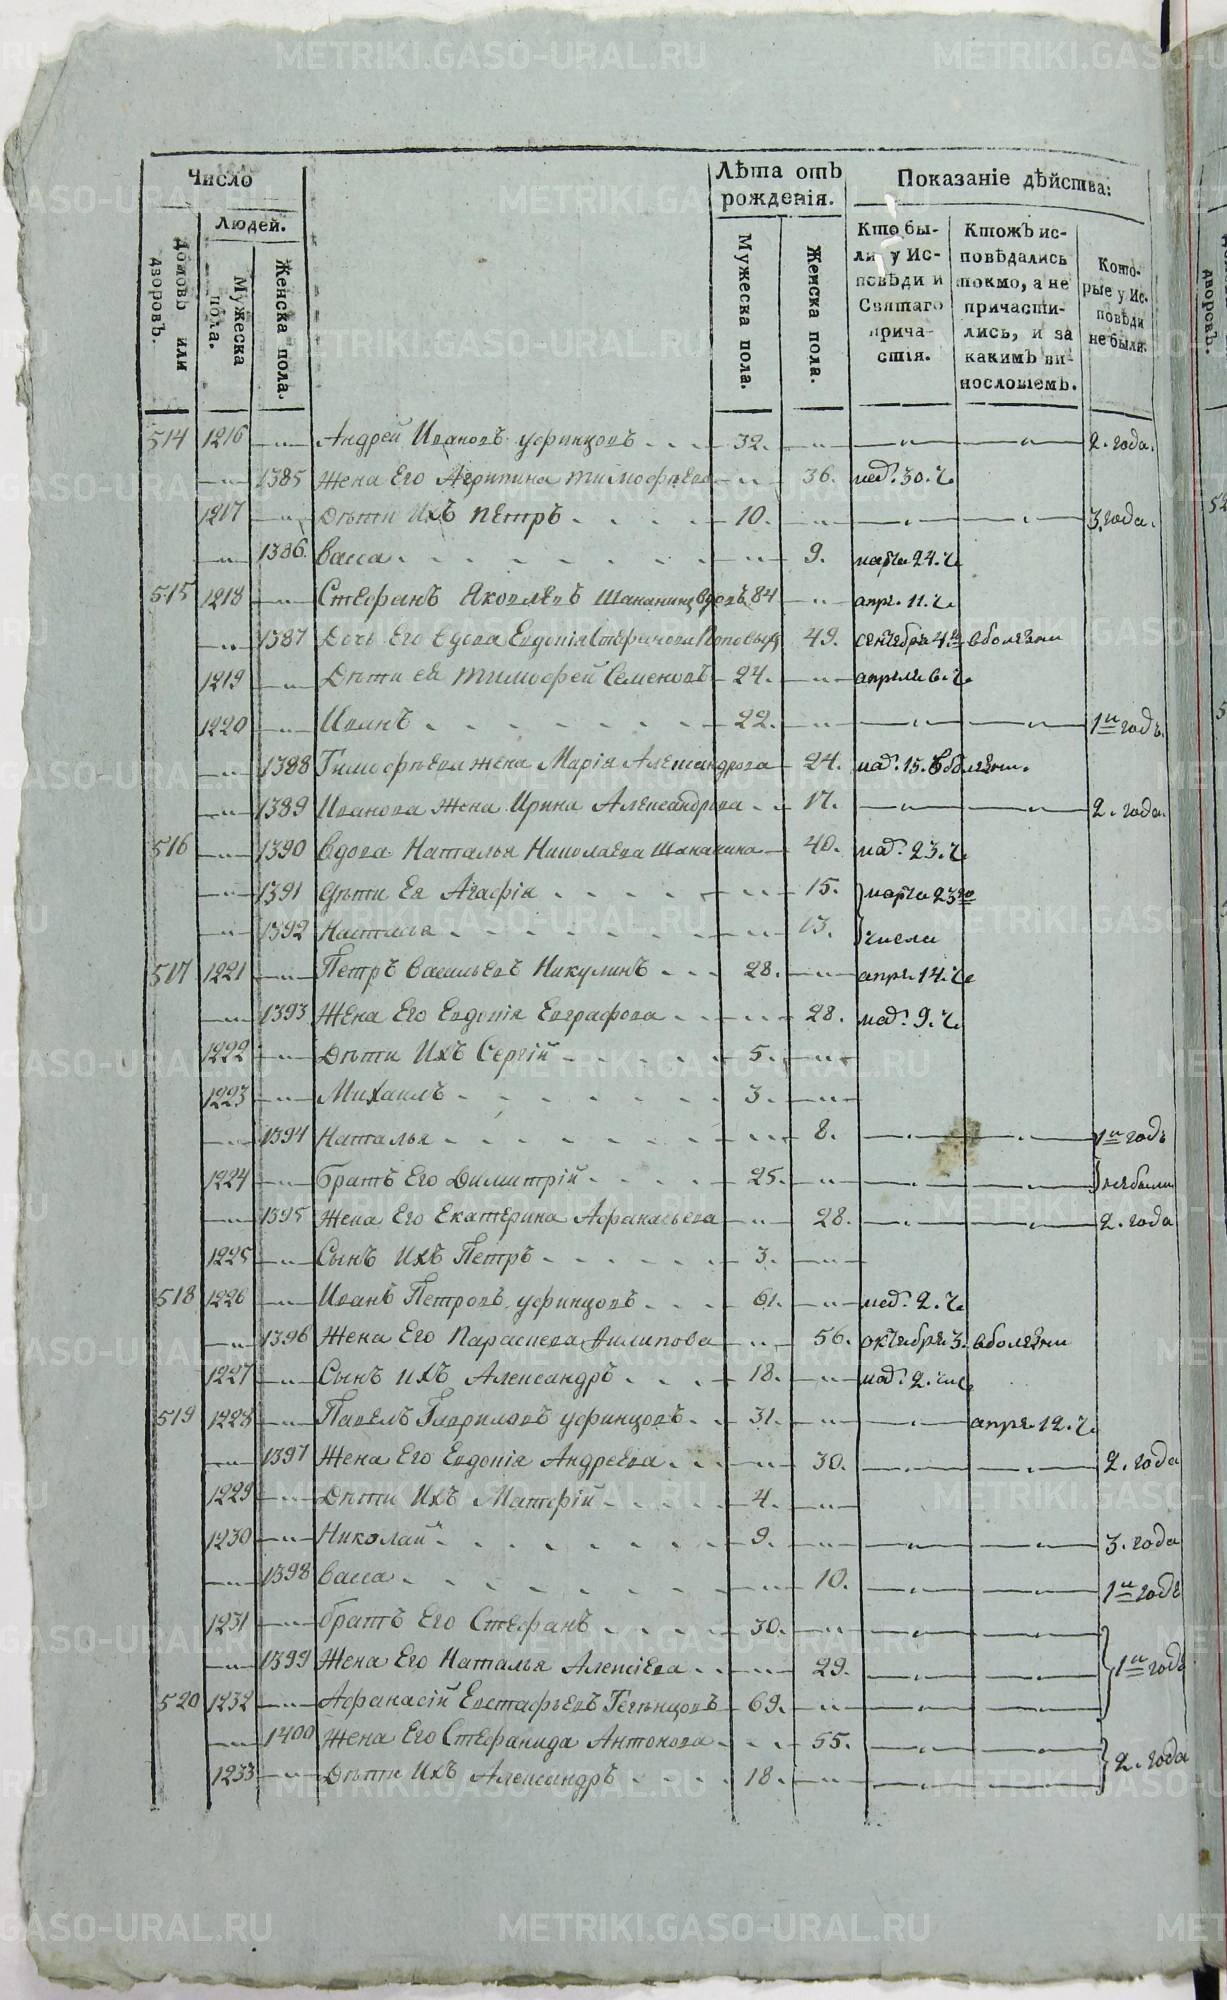 Число
Людей.
домовъ или дворовъ.
Мужеска пола.
Женска пола.
Лѣта отъ рожденія.
Мужеска пола.
Женска пола.
Показаніе дѣйства:
Кто бы-
ли у Ис-
повѣди и
Святаго
прича-
стія.
Ктожъ ис-
повѣдались
токмо, а не
причасти-
лись, и за
какимъ ви-
нословіемъ.
Кото-
рые у Ис-
повѣди
не были.
514 1216 Андрей Ивановъ уфинцовъ 32. 2. года.
1385 Жена Его Агрипина тимофѣева 36. 30. ч.
1217 Дѣти Ихъ Петръ 10. 3. года.
1386 Васса 9. марта 24. ч.
515 1218 Стефанъ Яковлевъ Шананинъ вдовъ 84 апр. 11. ч.
1387 Дочь Его вдова Евдокія Стефанова 49. сентября 4. в болезни
1219 Дѣти ея тимофей Семеновъ 24. апреля 6. ч.
1220 Иванъ 22. 1й годъ.
1388 Тимофѣева жена Марія Александрова 24. 15. в болезни.
1389 Иванова жена Ирина Александрова 17. 2. года.
516 1390 Вдова Наталья Николаева Шананина 40. 23. ч.
1391 Дѣти Ея Агафія 15. марта 23го
1392 Наталья 13. числа
517 1221 Петръ Васильевъ Никулинъ 28. апр. 14. ч.
1393 Жена Его Евдокія Евграфова 28. 9. ч.
1222 Дѣти Ихъ Сергій 5.
1223 Михаилъ 3.
1394 Наталья 8. 1й годъ
1224 Братъ Его Димитрій 25. не были
1395 Жена Его Екатерина Афанасьева 28. 2. года
1225 Сынъ Ихъ Петръ 3.
518 1226 Иванъ Петровъ уфинцовъ 61. 2. ч.
1396 Жена Его Параскева Филипова 56. октября 3. в болезни
1227 Сынъ Ихъ Александръ 18. 2. чис.
519 1228 Павелъ Гавриловъ уфинцовъ 31. апре. 12. ч.
1397 Жена Его Евдокія Андреева 30. 2. года
1229 Дѣти Ихъ Матфій 4.
1230 Николай 9. 3. года
1398 Васса 10. 1й годъ
1231 Братъ Его Стефанъ 30.
1399 Жена Его Наталья Алексіева 29. 1й годъ
520 1232 Афанасій Евстафьевъ 69.
1400 Жена Его Стефанида Антонова 55.
1233 Дѣти Ихъ Александръ 18. 2. года
дворовъ.
METRIKI.GASO-URAL.RU